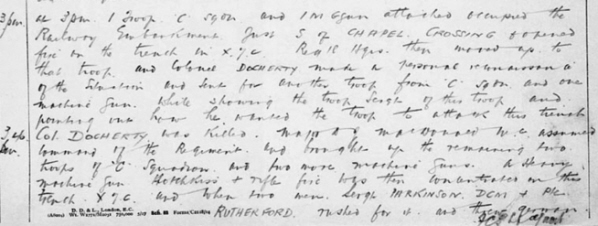 3pm. at 3pm. 1 Troop 'C' sqdn. and 1 M Gun attached occupied the
Railway Embankment just S of CHAPEL CROSSING & opened
fire on the trench in X.7.c. Regtl Hqrs. then moved up to
that troop and Colonel DOCHERTY made a personal reconnaissance
of the situation and sent for another troop from 'C' Sqdn. and one
machine gun. While showing the troop Sergt of this troop and
pointing out how he wanted the troop to attack this trench
Col. DOCHERTY was killed. Major MACDONALD M.C. assumed
command of the Regiment and brought up the remaining two
troops of 'C' Squadron and two more machine guns. A Heavy
machine gun HOTCHKISS & rifle fire was then concentrated on this
trench X.7.c. and when two men Sergt PARKINSON. DCM & Pte
RUTHERFORD. rushed for it and three German
D. D. & L., London, E.C.
Forms/C2118/14